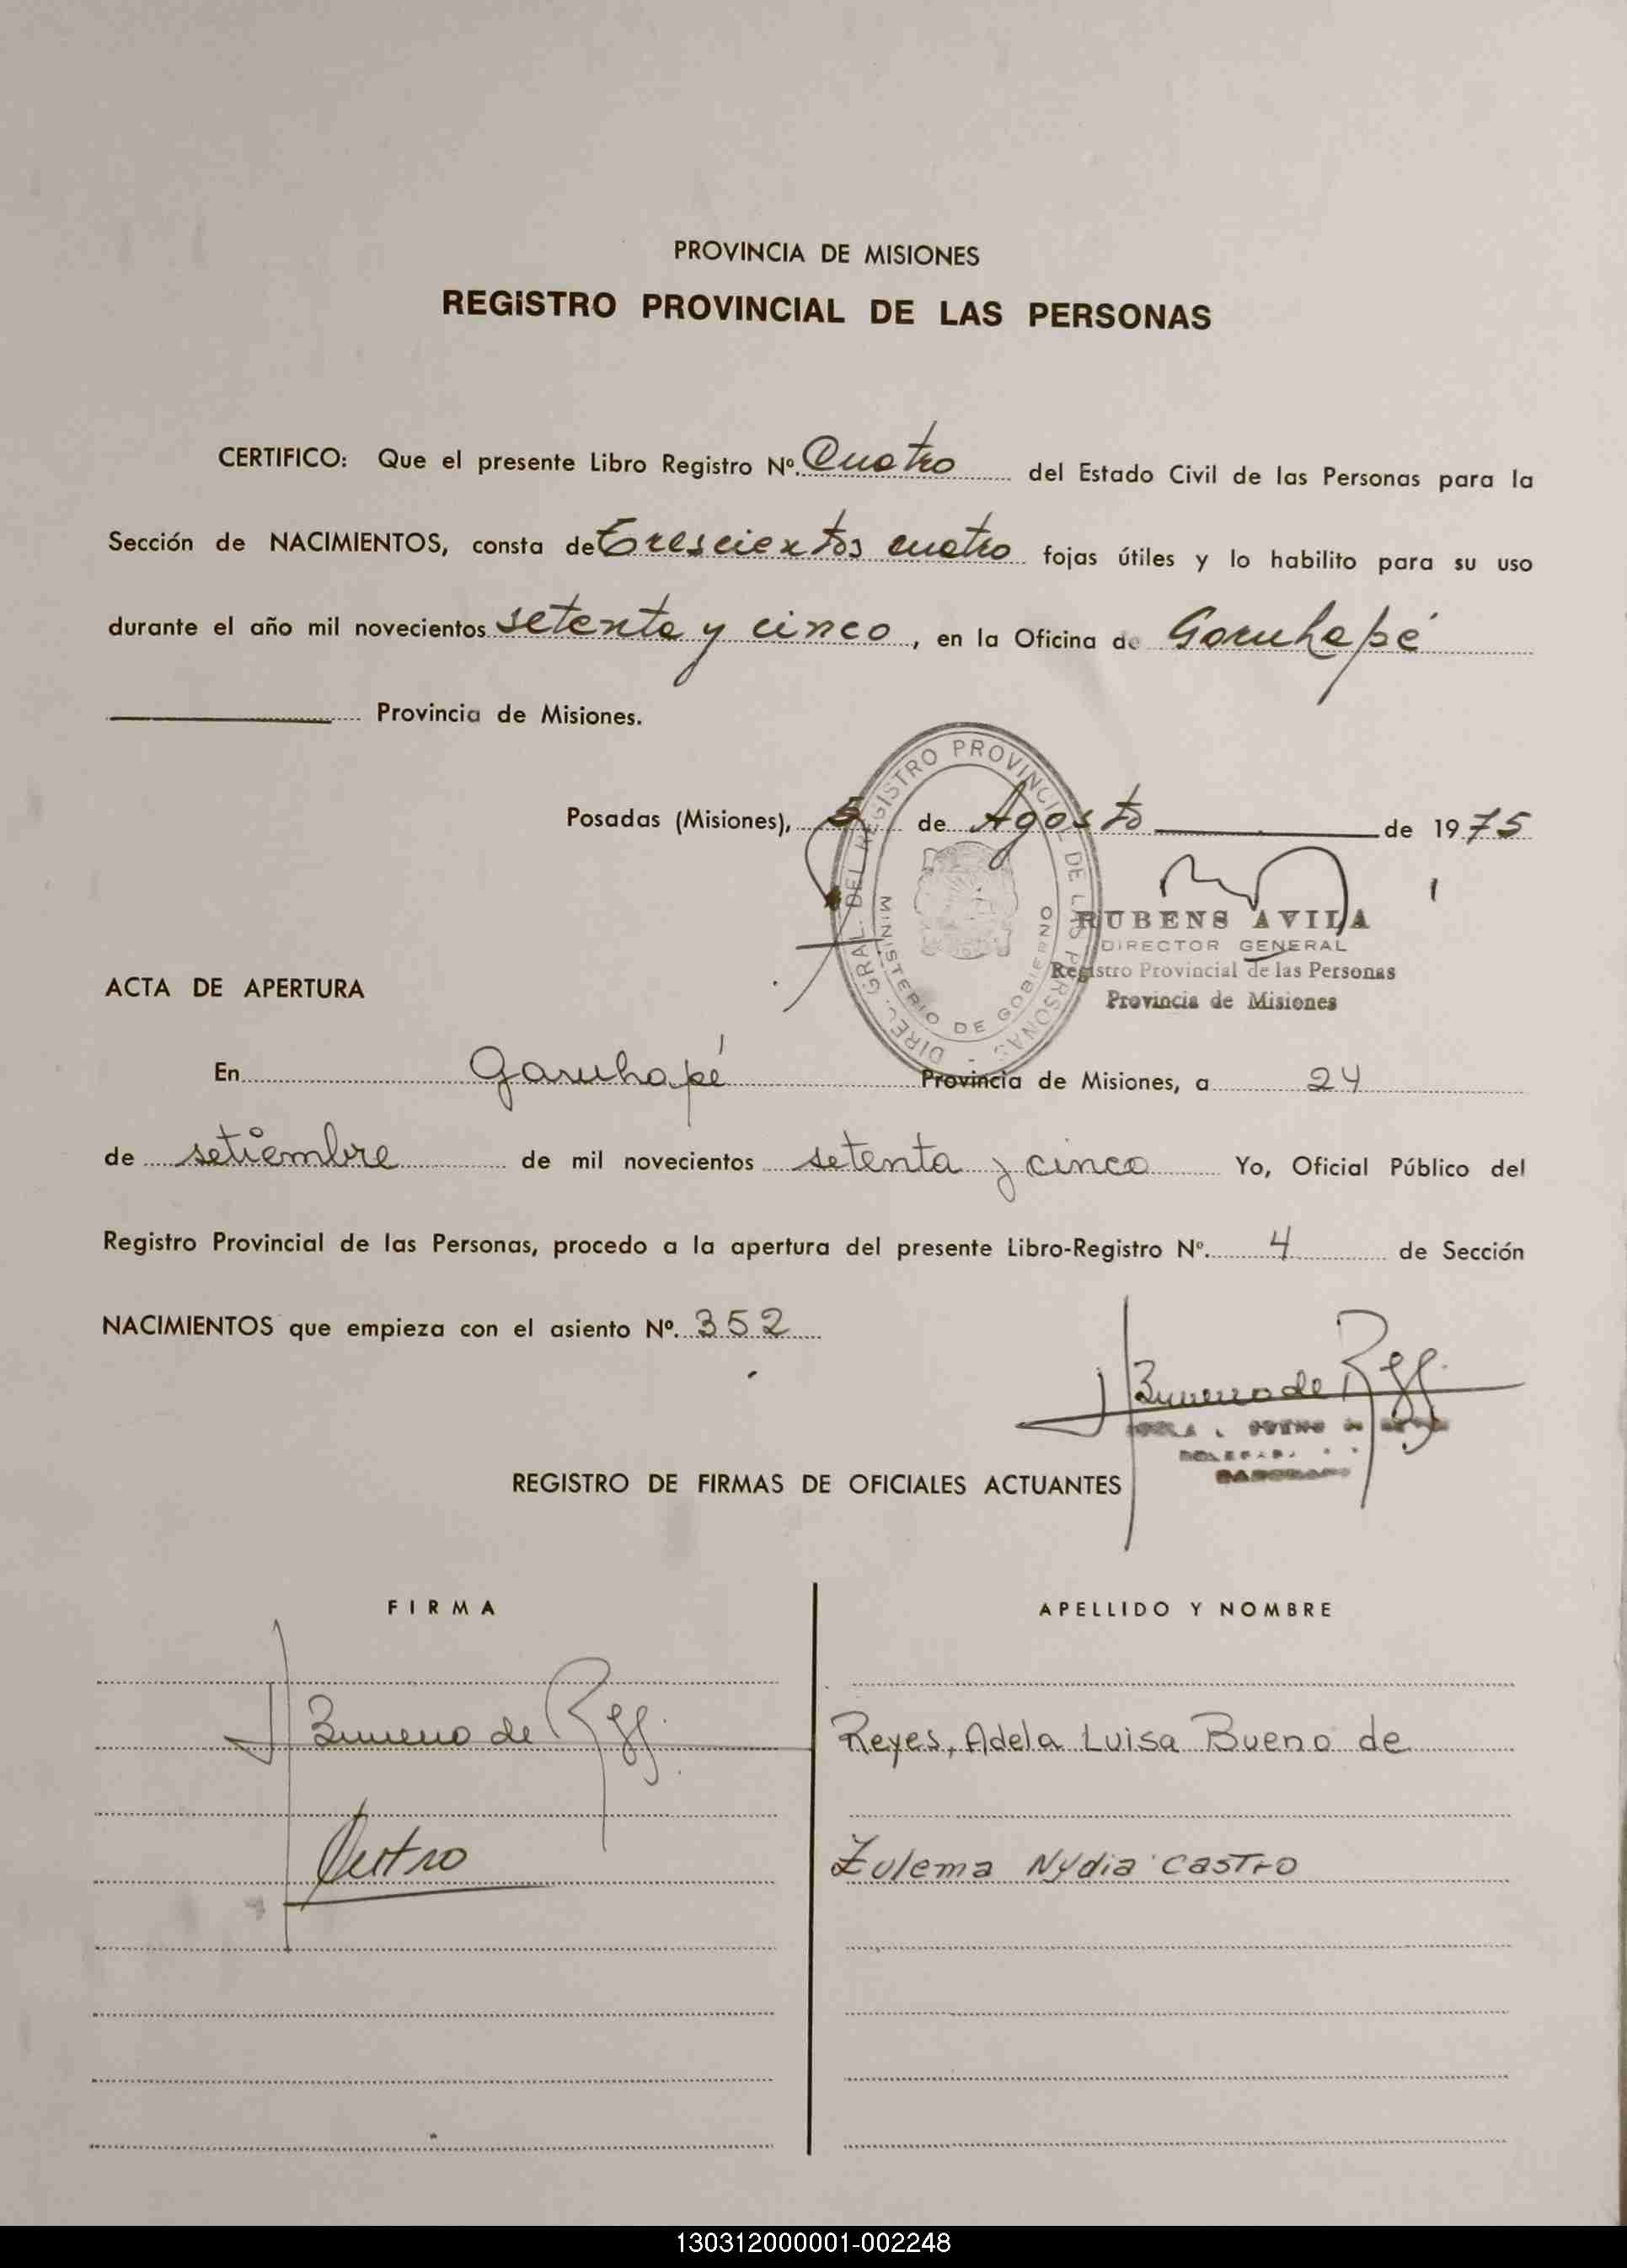 PROVINCIA DE MISIONES
REGISTRO PROVINCIAL DE LAS PERSONAS
CERTIFICO: Que el presente Libro Registro Nº. Cuatro del Estado Civil de las Personas para la
Sección de NACIMIENTOS, consta de Trescientos cuatro fojas útiles y lo habilito para su uso
durante el año mil novecientos setenta y cinco, en la Oficina de Garuhapé
Provincia de Misiones.
Posadas (Misiones), 5 de Agosto de 1975
DIREC. GRAL. DEL REGISTRO PROVINCIAL DE LAS PERSONAS -
MINISTERIO DE GOBIERNO
RUBENS AVILA
DIRECTOR GENERAL
Registro Provincial de las Personas
Provincia de Misiones
ACTA DE APERTURA
En Garuhapé Provincia de Misiones, a 24
de setiembre de mil novecientos setenta y cinco Yo, Oficial Público del
Registro Provincial de las Personas, procedo a la apertura del presente Libro-Registro Nº. 4 de Sección
NACIMIENTOS que empieza con el asiento Nº. 352
Bueno de
REGISTRO DE FIRMAS DE OFICIALES ACTUANTES
FIRMA
APELLIDO Y NOMBRE
Bueno de
Reyes, Adela Luisa Bueno de
Castro
Zulema Nydia Castro
130312000001-002248